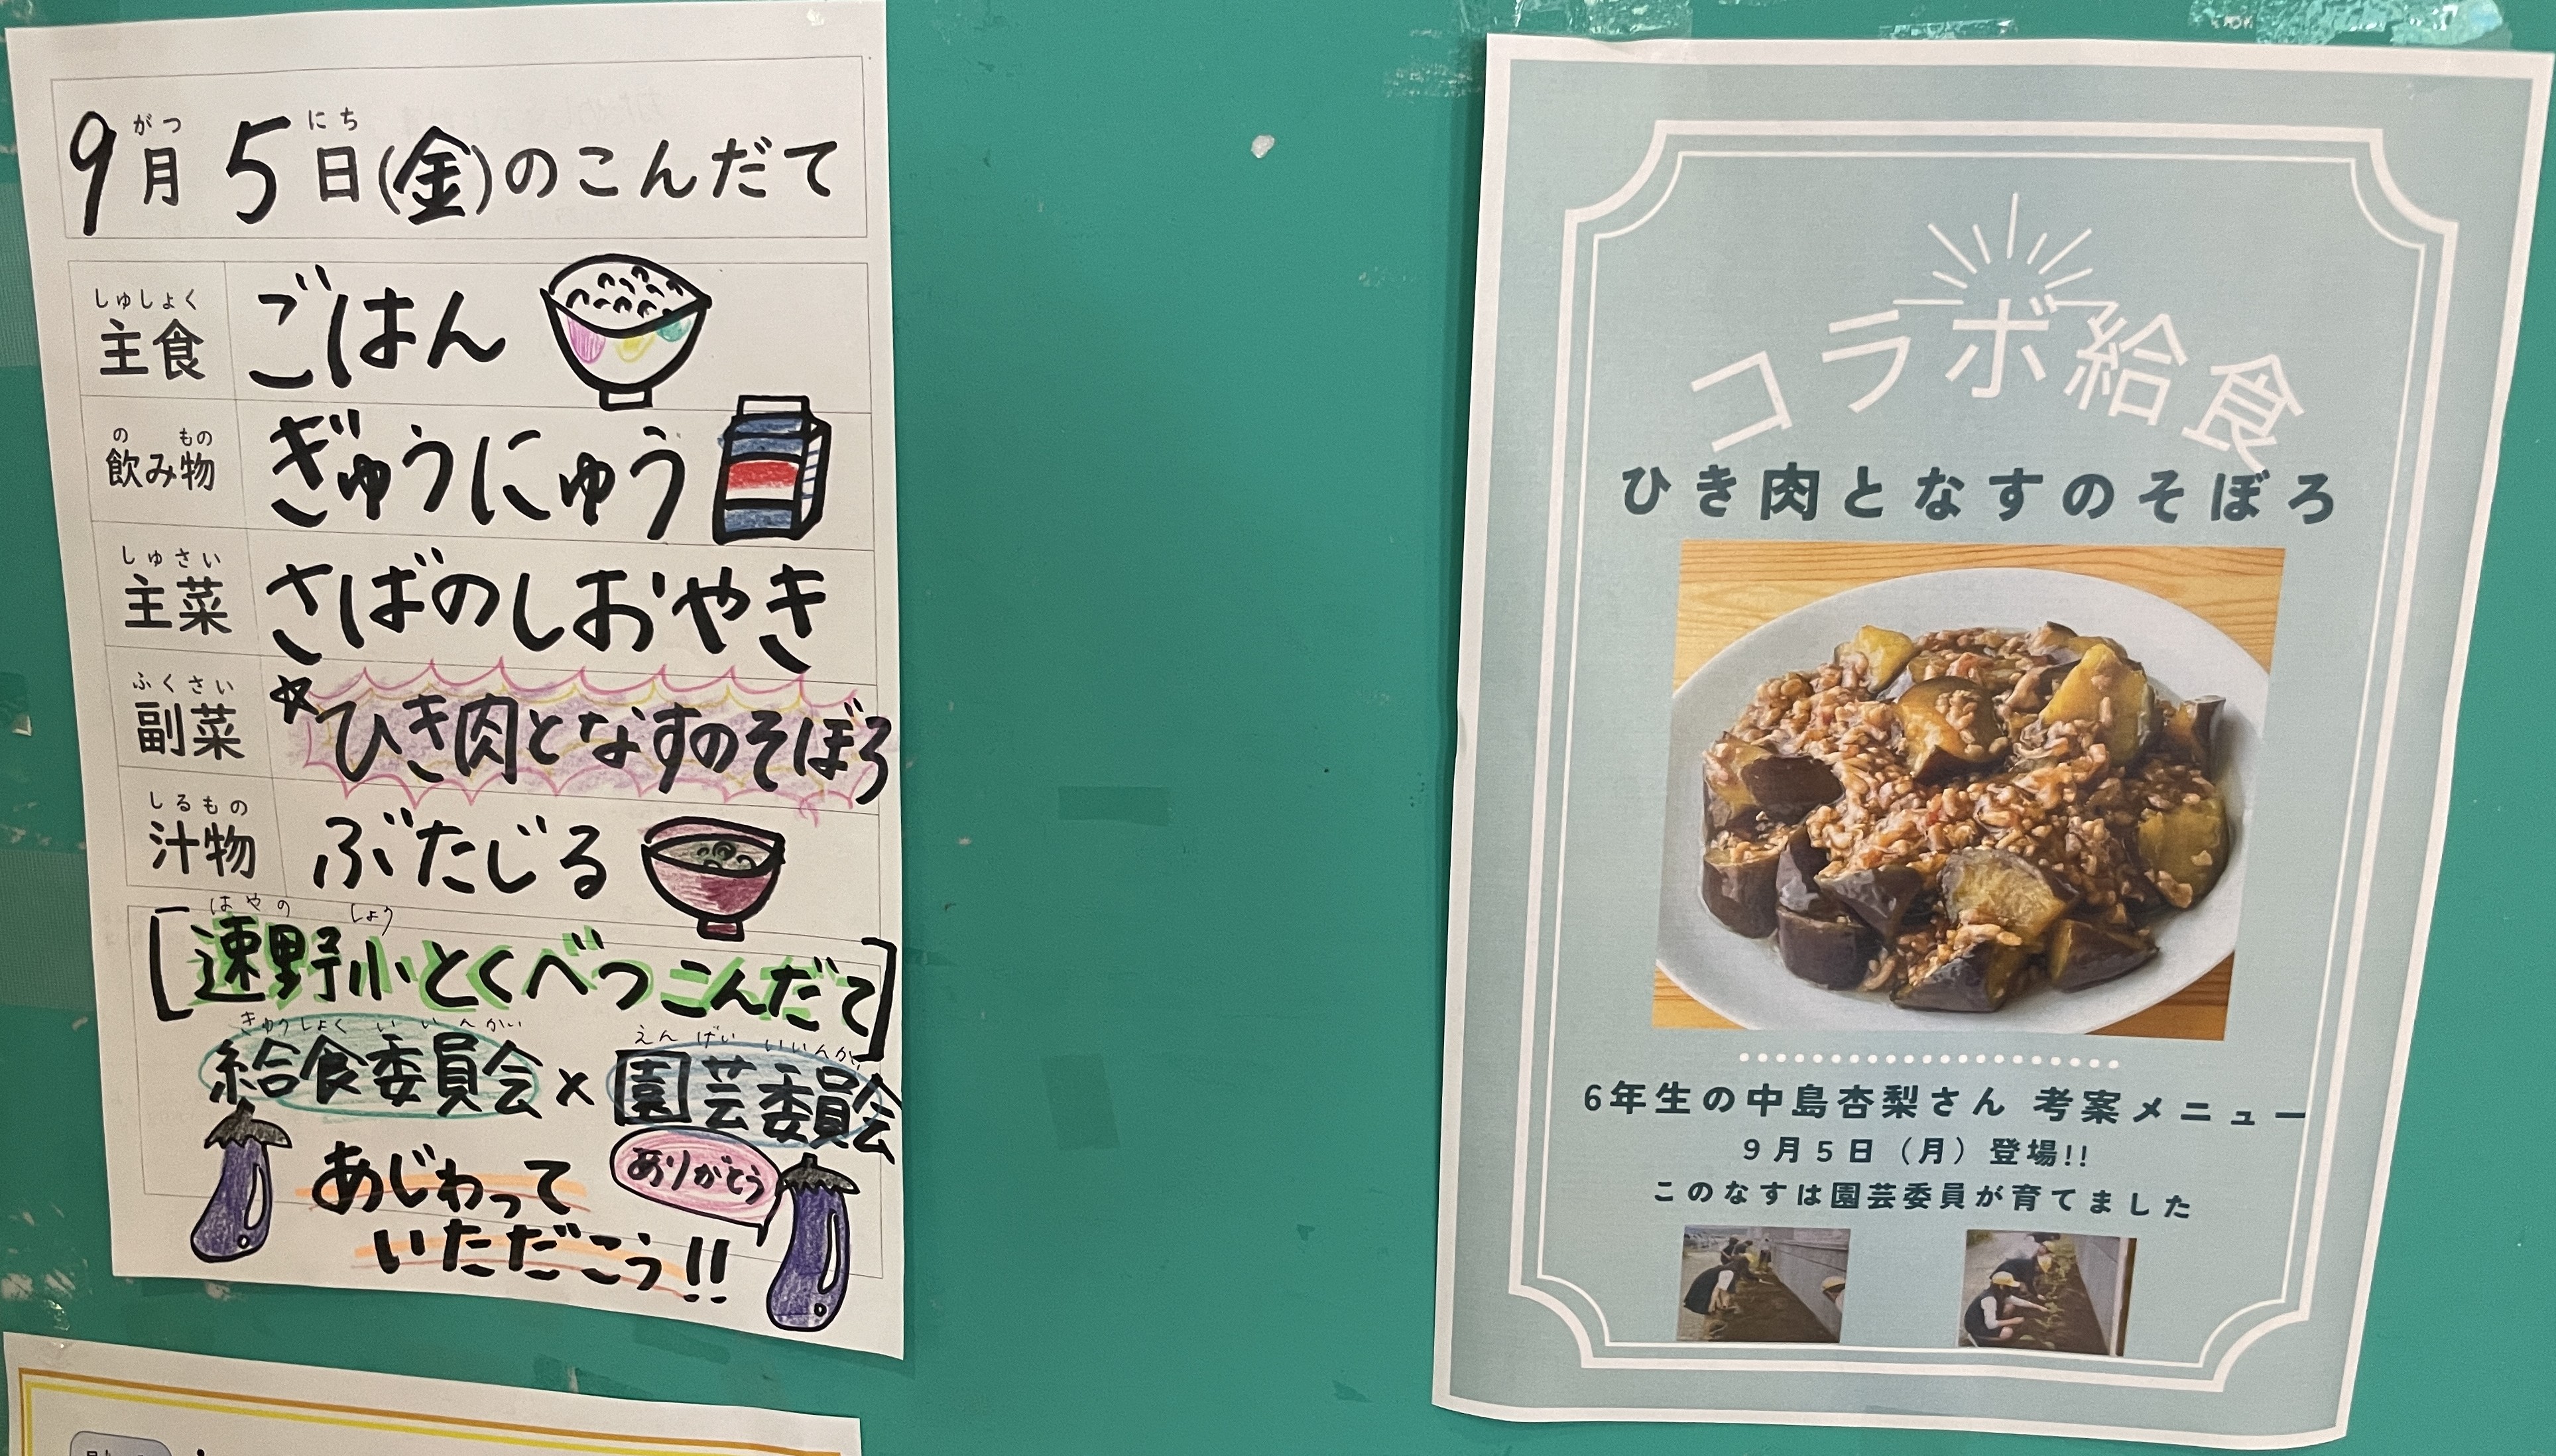 がつ にち
9月5日(金)のこんだて
しゅしょく
主食
ごはん
の もの
飲み物
ぎゅうにゅう
しゅさい
主菜
さばのしおやき
ふくさい
副菜
☆ひき肉となすのそぼろ
しるもの
汁物
ぶたじる
はやの しょう
[速野小とくべつこんだて]
きゅうしょくいいんかい えんげいいいんかい
給食委員会×園芸委員会
あじわって
いただこう!!
ありがとう
コラボ給食
ひき肉となすのそぼろ
6年生の中島杏梨さん 考案メニュー
9月5日(月)登場!!
このなすは園芸委員が育てました